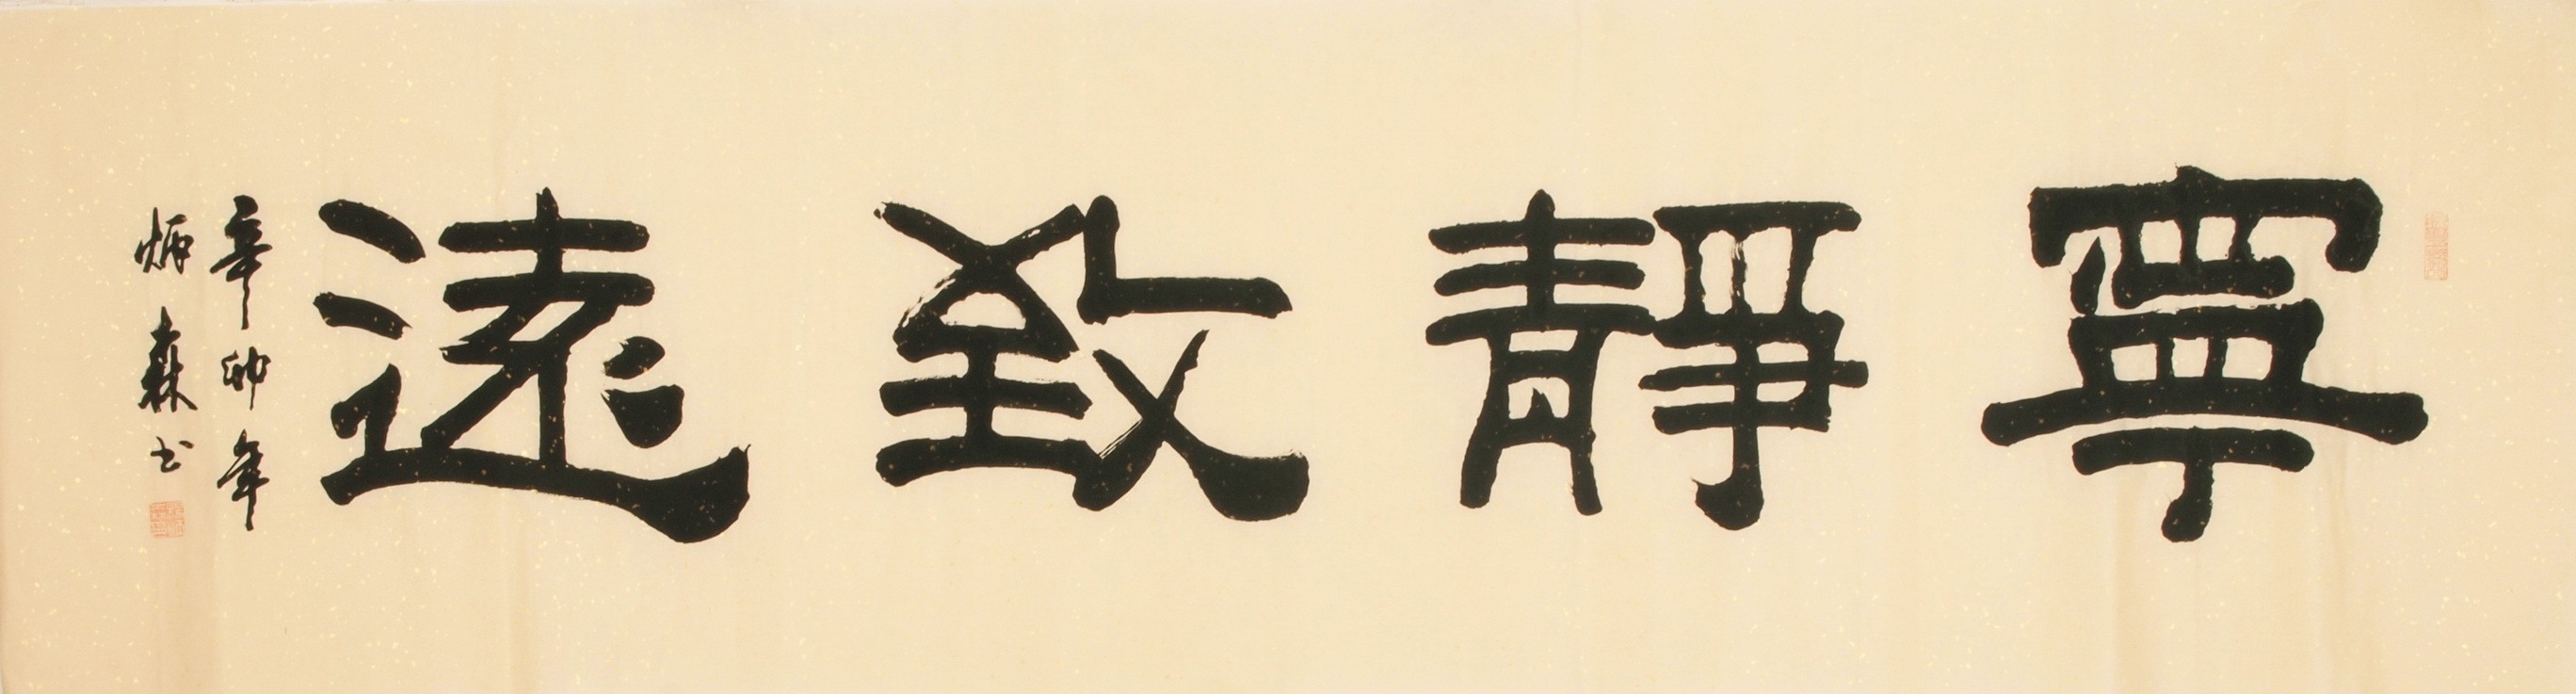 寧靜致遠
辛卯年
炳森书